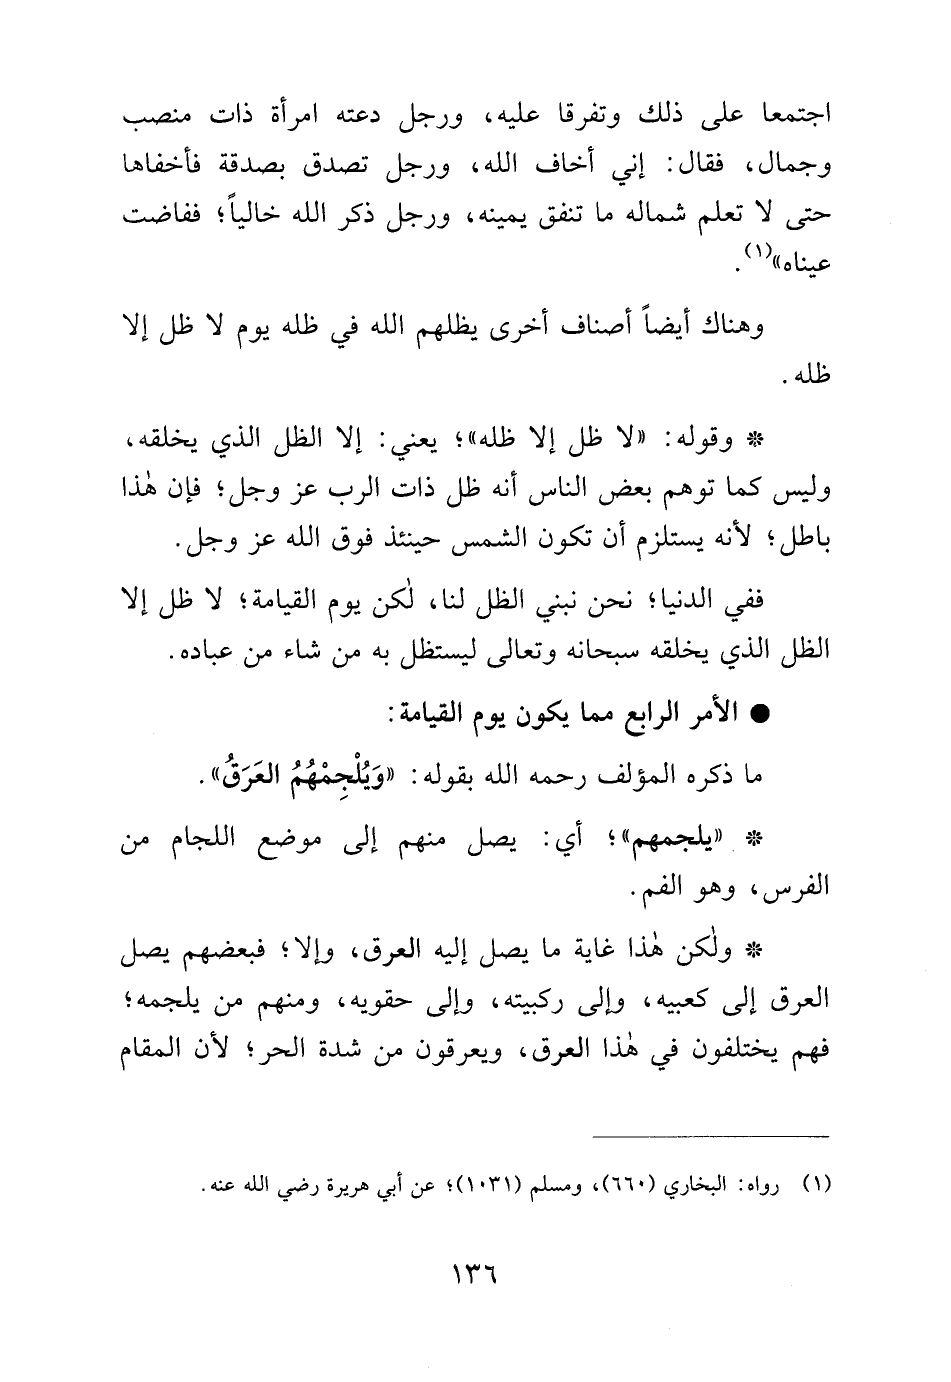 اجتمعا على ذلك وتفرقا عليه، ورجل دعته امرأة ذات منصب
وجمال، فقال: إني أخاف الله، ورجل تصدق بصدقة فأخفاها
حتى لا تعلم شماله ما تنفق يمينه، ورجل ذكر الله خالياً؛ ففاضت
عيناه»(١).
وهناك أيضاً أصناف أخرى يظلهم الله في ظله يوم لا ظل إلا
ظله.
* وقوله: «لا ظل إلا ظله»؛ يعني: إلا الظل الذي يخلقه،
وليس كما توهم بعض الناس أنه ظل ذات الرب عز وجل؛ فإن هٰذا
باطل؛ لأنه يستلزم أن تكون الشمس حينئذ فوق الله عز وجل.
ففي الدنيا؛ نحن نبني الظل لنا، لٰكن يوم القيامة؛ لا ظل إلا
الظل الذي يخلقه سبحانه وتعالى ليستظل به من شاء من عباده.
● الأمر الرابع مما يكون يوم القيامة:
ما ذكره المؤلف رحمه الله بقوله: «وَيُلْجِمُهُمُ العَرَقُ».
* «يلجمهم»؛ أي: يصل منهم إلى موضع اللجام من
الفرس، وهو الفم.
* ولٰكن هٰذا غاية ما يصل إليه العرق، وإلا؛ فبعضهم يصل
العرق إلى كعبيه، وإلى ركبيته، وإلى حقويه، ومنهم من يلجمه؛
فهم يختلفون في هٰذا العرق، ويعرقون من شدة الحر؛ لأن المقام
(١) رواه: البخاري (٦٦٠)، ومسلم (١٠٣١)؛ عن أبي هريرة رضي الله عنه.
١٣٦